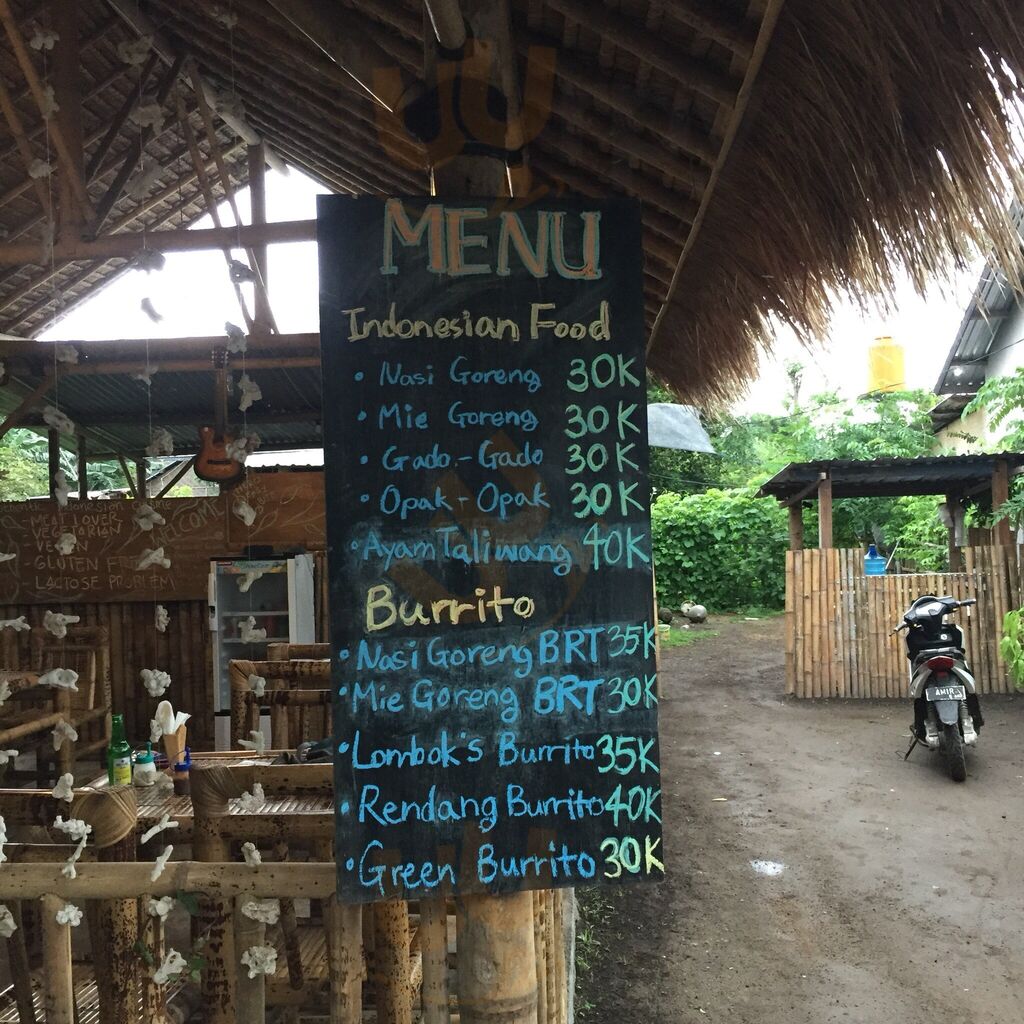 MENU
Indonesian Food
• Nasi Goreng 30K
• Mie Goreng 30K
• Gado-Gado 30K
• Opak-Opak 30K
• Ayam Taliwang 40K
Burrito
• Nasi Goreng BRT 35K
• Mie Goreng BRT 30K
• Lombok's Burrito 35K
• Rendang Burrito 40K
• Green Burrito 30K
- MEAT LOVER
- VEGETARIAN
- VEGAN
- GLUTEN
- LACTOSE PROBLEM
WELCOME
AMIR